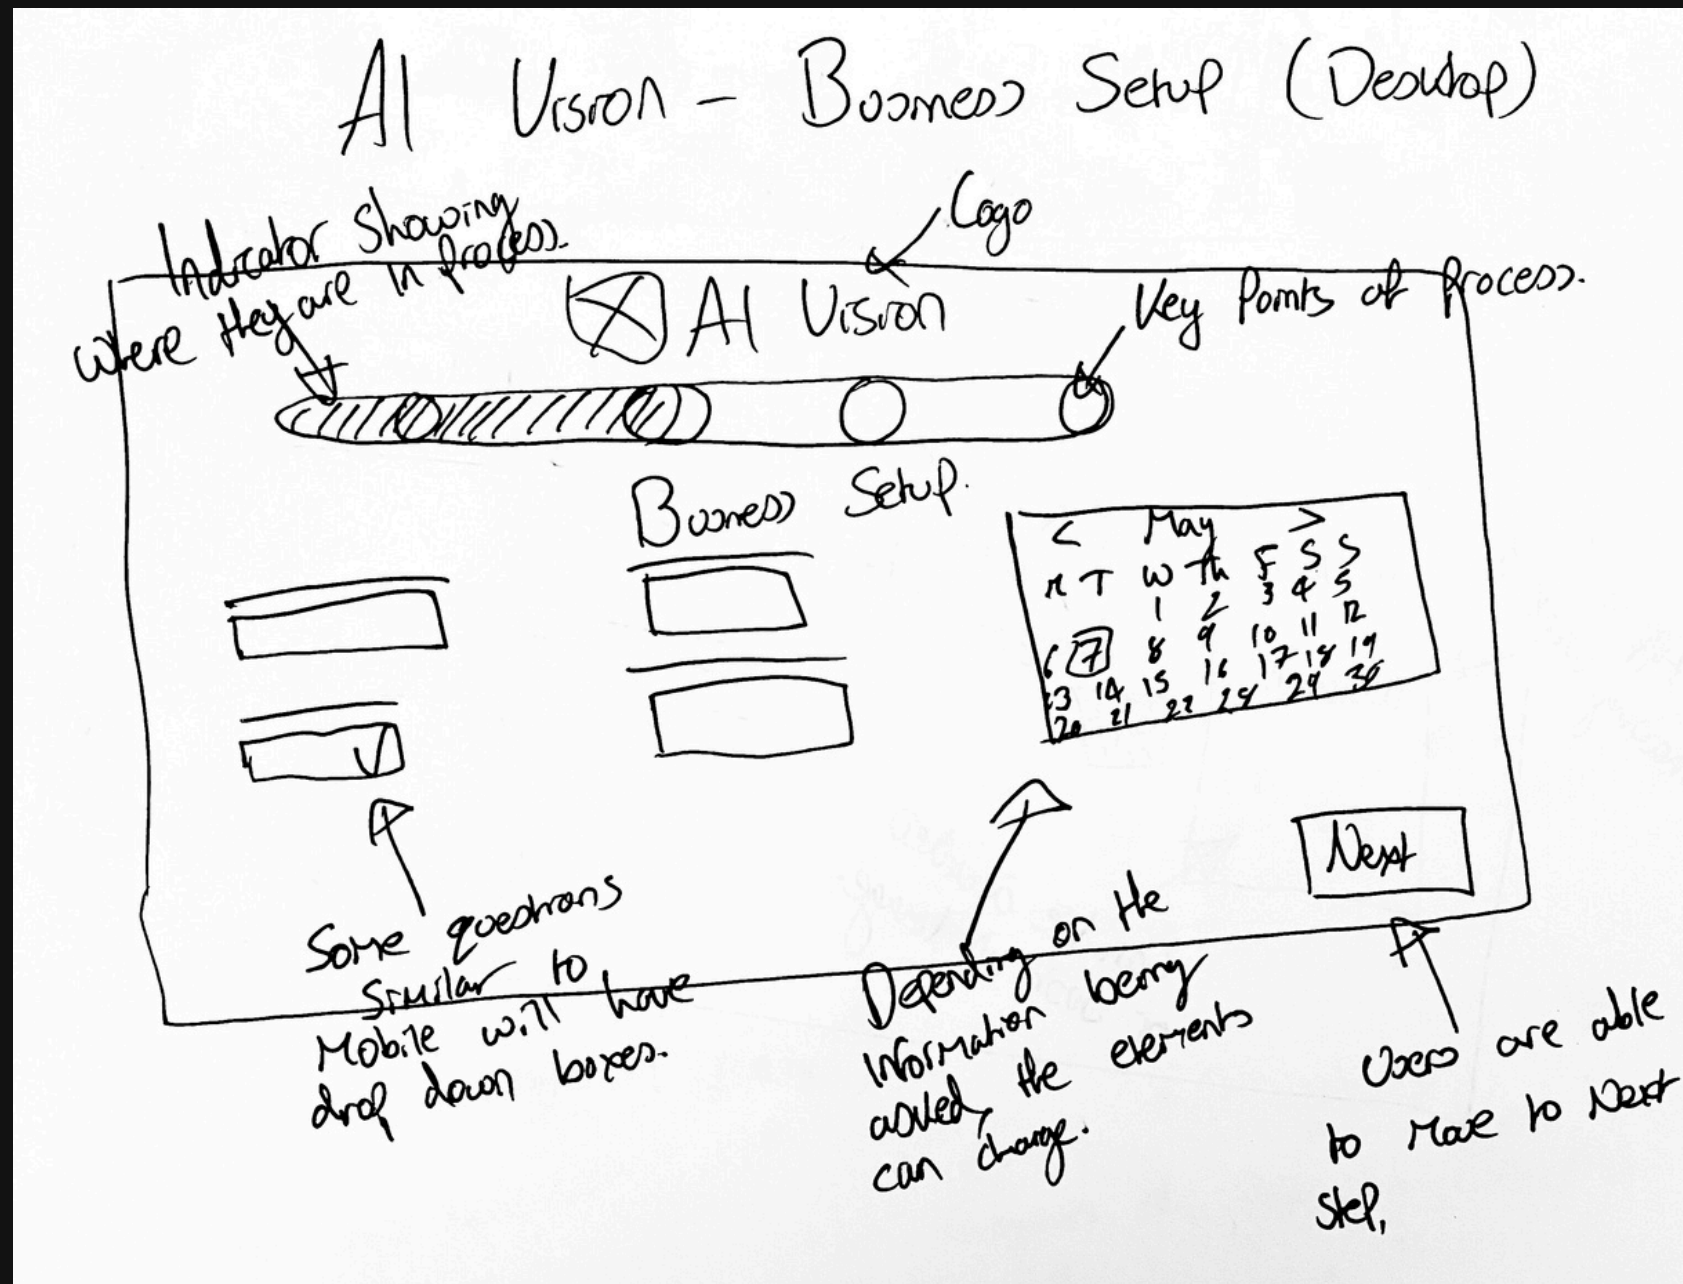 AI Vision - Business Setup (Desktop)
Logo
Indicator Showing
where they are in process.
AI Vision
Key Points of Process.
Business Setup.
< May >
M T W Th F S S
1 2 3 4 5
6 7 8 9 10 11 12
13 14 15 16 17 18 19
20 21 22 28 29 30
Next
Some questions
similar to
Mobile will have
drop down boxes.
Depending on the
information being
asked, the elements
can change.
Users are able
to Move to Next
Step.